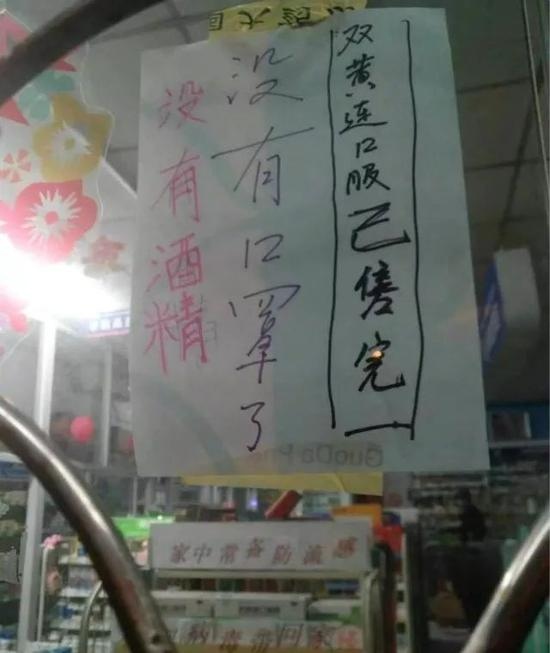 双黄连口服已售完
没有口罩了
没有酒精
GuoDa
家中常备防流感
病毒带回家